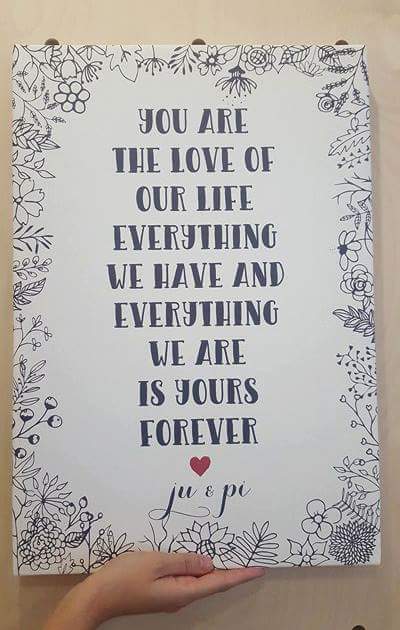 YOU ARE
THE LOVE OF
OUR LIFE
EVERYTHING
WE HAVE AND
EVERYTHING
WE ARE
IS YOURS
FOREVER
ju & pi